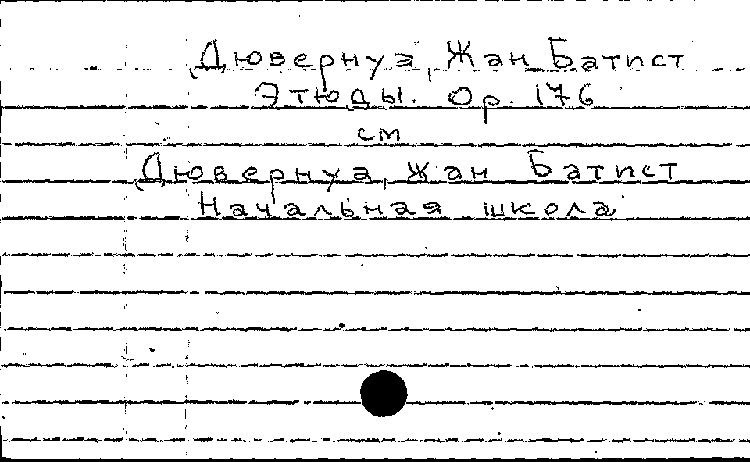 Дювернуа, Жан Батист
Этюды. Op. 176
см
Дювернуа, Жан Батист
Начальная школа